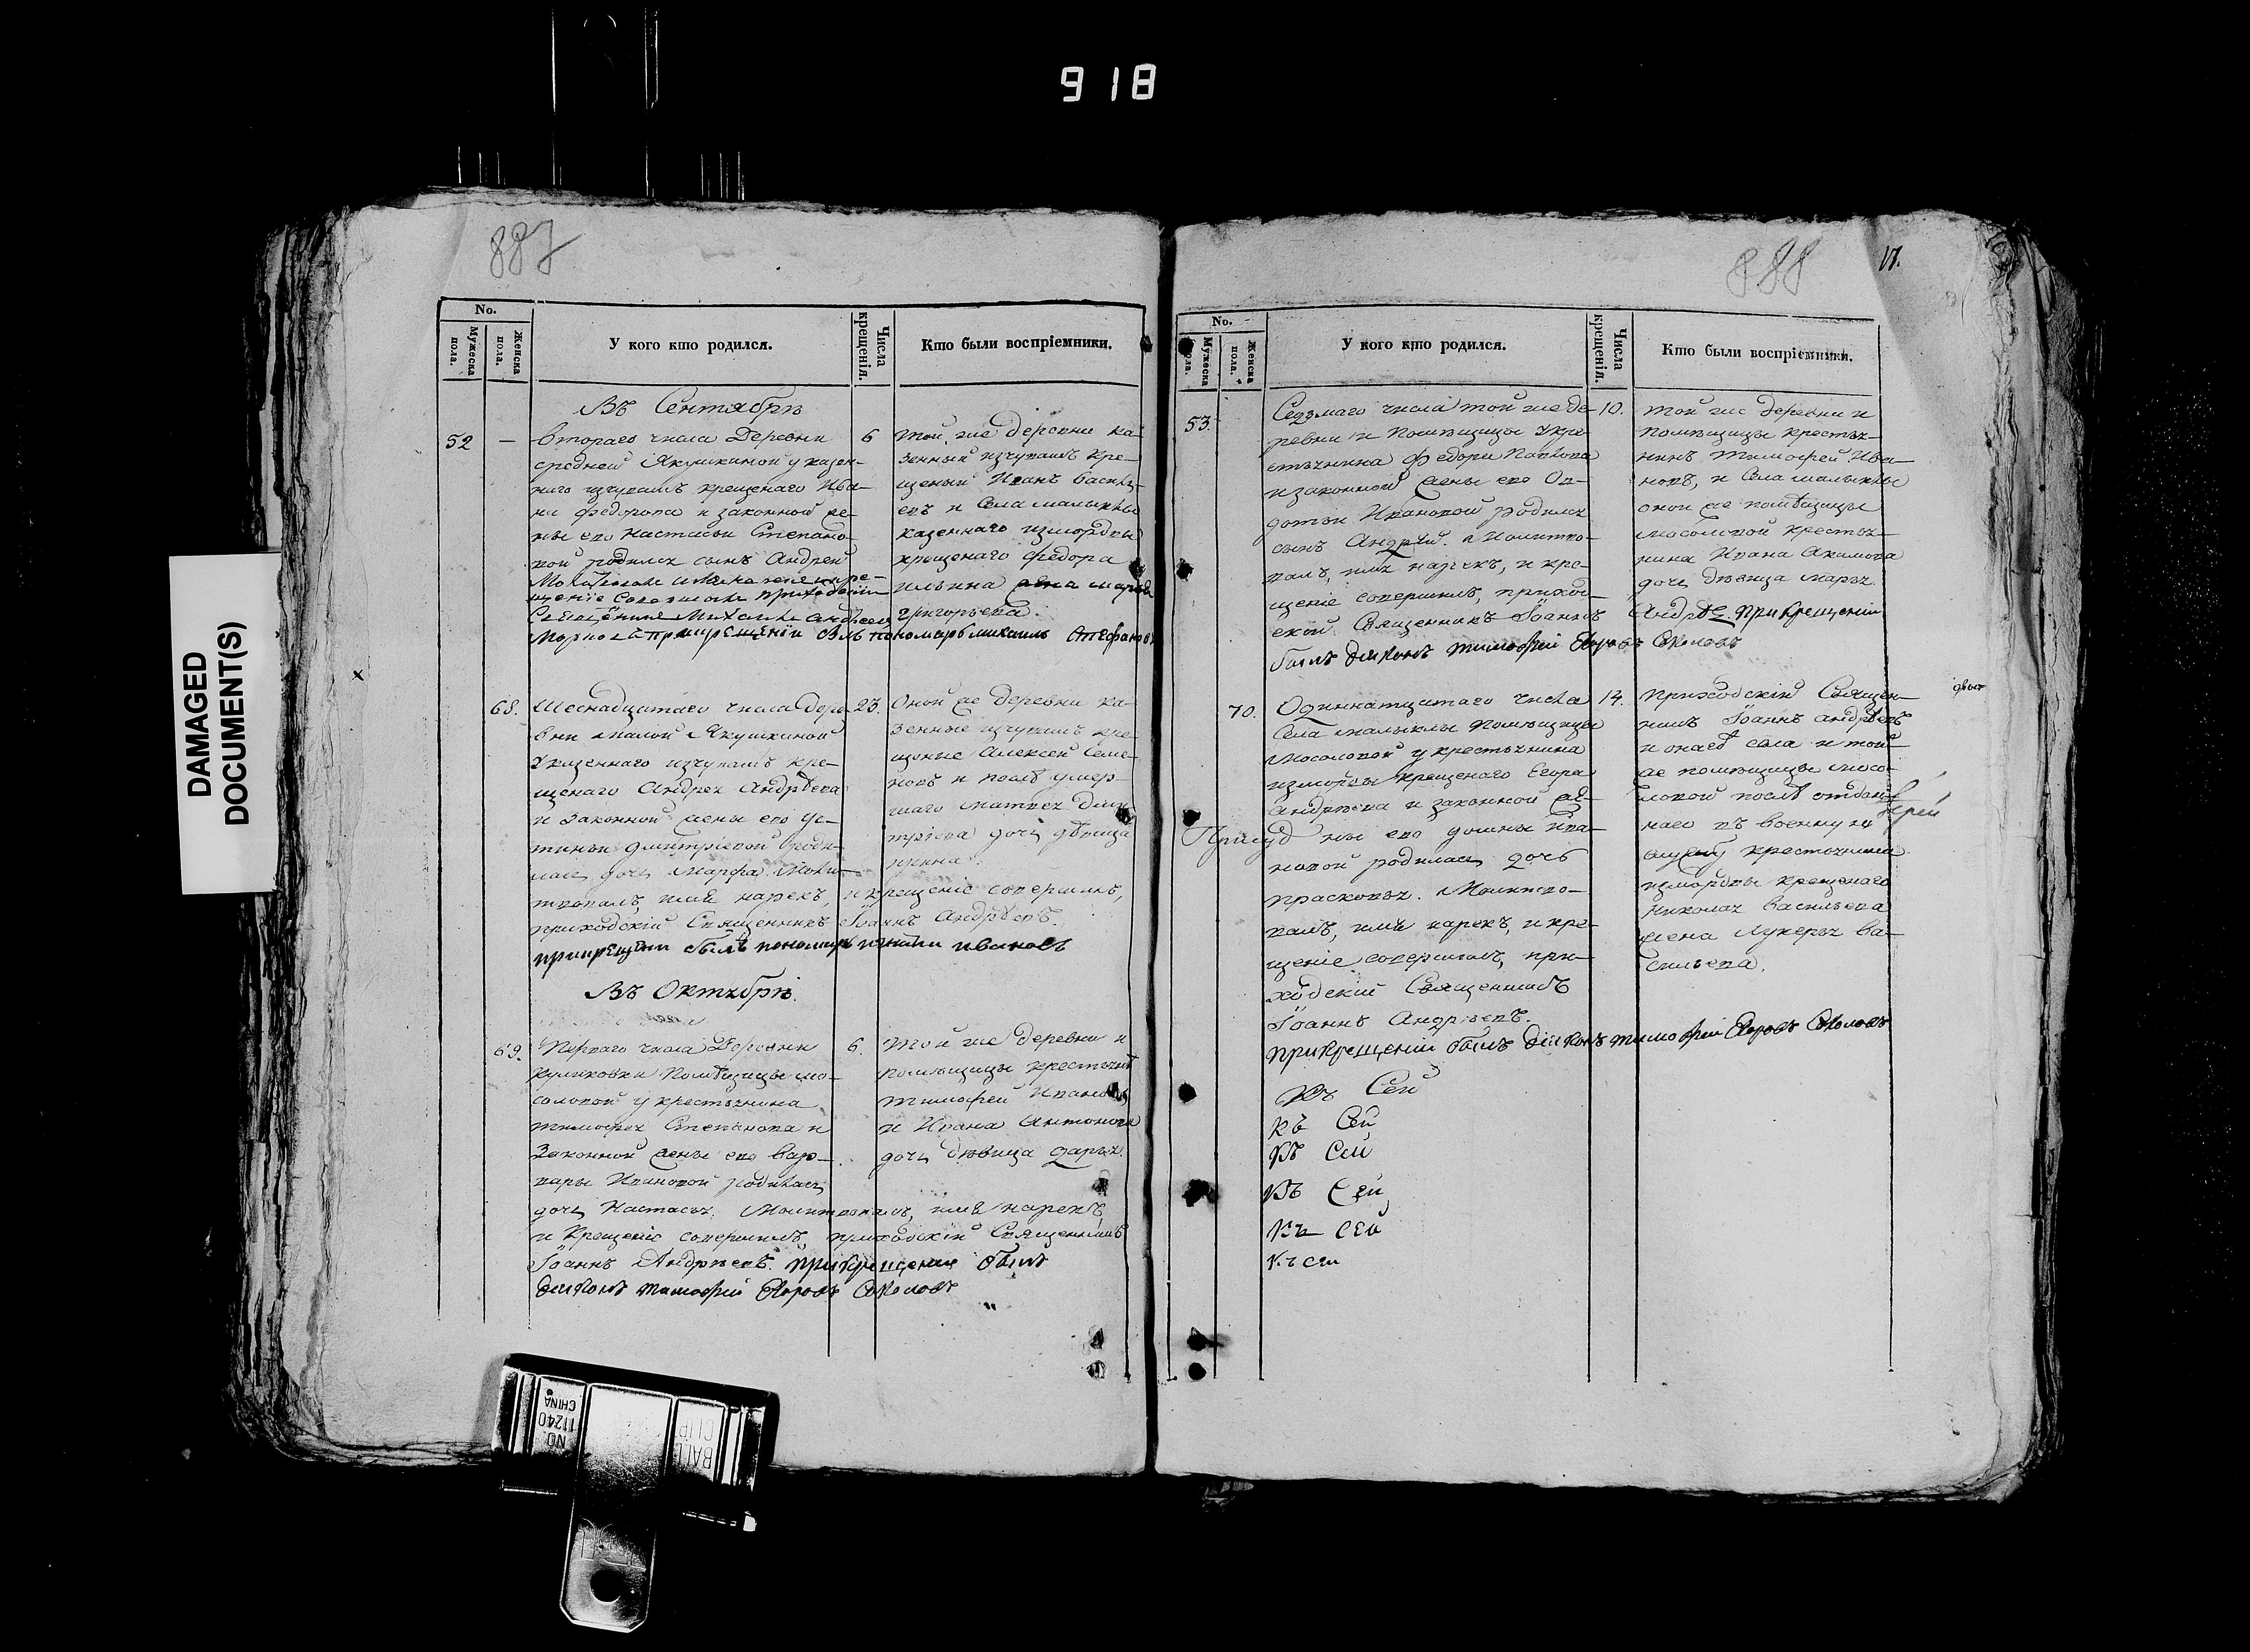 918
DAMAGED
DOCUMENT(S)
887
No.
Мужеска пола.
Женска пола.
У кого кто родился.
Числа крещенія.
Кто были воспріемники.
Въ Сентябрѣ
52 — втораго числа Деревни
средней Якушкиной у казен-
наго изчувашъ крещенаго Ива-
на Федорова и законной же-
ны его Настасьи Степано-
вой родился сынъ Андрей
щеніе совершилъ приходскій
Священникъ Михаилъ Андреевъ
при крещеніи былъ пономарь михаилъ Стефановъ
6 той же деревни ка-
зенный изчувашъ кре-
щеный Иванъ Василь-
евъ и Села малыклы
казеннаго измордвы
крещенаго Федора
ильина жена марфа
Григорьева.
68. Шеснадцатаго числа дере-
вни малой Якушкиной
Указеннаго изчувашъ кре-
щенаго Андрея Андрѣева
и законной жены его Ус-
тиньи Дмитріевой роди-
лась дочь Марфа. Молит-
твовалъ, имя нарекъ, и крещеніе совершилъ,
приходскій Священникъ Іоаннъ Андрѣевъ.
при крещении былъ пономарь ивановъ
23. Оной же деревни ка-
зенные изчувашъ кре-
щеные Алексей Семе-
новъ и послѣ умер-
шаго матвея Дми-
тріева дочь дѣвица
ирина.
Въ Октябрѣ.
69. Перваго числа Деревни
куликовки Помѣщицы мо-
соловой у крестьянина
тимофея Степанова и
Законной жены его Вар-
вары Ивановой родилась
дочь Настасья. Молитвовалъ, имя нарекъ,
и Крещеніе совершилъ, приходскій Священникъ
Іоаннъ Андрѣевъ. при крещении былъ
диаконъ тимофей Егоровъ Соколовъ
6. той же деревни и
помѣщицы крестьянинъ
тимофей Ивановъ
и Ивана Антонова
дочь дѣвица дарья.
888
17.
No.
Мужеска пола.
Женска пола.
У кого кто родился.
Числа крещенія.
Кто были воспріемники.
53. Седьмаго числа той же де-
ревни и Помѣщицы Укре-
стьянина Федора Павлова
и законной жены его Ов-
дотьи Ивановой родился
сынъ Андрѣй. Молитво-
валъ, имя нарекъ, и кре-
щеніе совершилъ, приход-
ской Священникъ Іоаннъ Андрѣе. при крещении
былъ диаконъ тимофей Егоровъ Соколовъ
10. той же деревни и
помѣщицы крестья-
нинъ Тимофей Ива-
новъ, и Села малыклы
оной же помѣщицы
мосоловой крестья-
нина Ивана Акимова
дочь дѣвица марья.
70. Одиннатцатаго числа
Села малыклы помѣщицы
Мосоловой у крестьянина
измордвы крещенаго Егора
Андрѣева и законной же-
ны его домны Ива-
новой родилась дочь
прасковья. Молитво-
валъ, имя нарекъ, и кре-
щеніе совершилъ, при-
ходскій Священникъ
Іоаннъ Андрѣевъ.
при крещении былъ диаконъ тимофей Егоровъ Соколовъ
14. приходскій Священ-
никъ Іоаннъ Андрѣевъ
и онаго села и той
же помѣщицы мосо-
ловой послѣ отдан-
наго въ военную
службу крестьянина
измордвы крещенаго
Николая васильева
жена Лукерья ва-
сильева.
Къ Сей
Къ Сей
Къ Сей
Къ Сей
Къ Сей
Къ сей
NO. 11240
CHINA